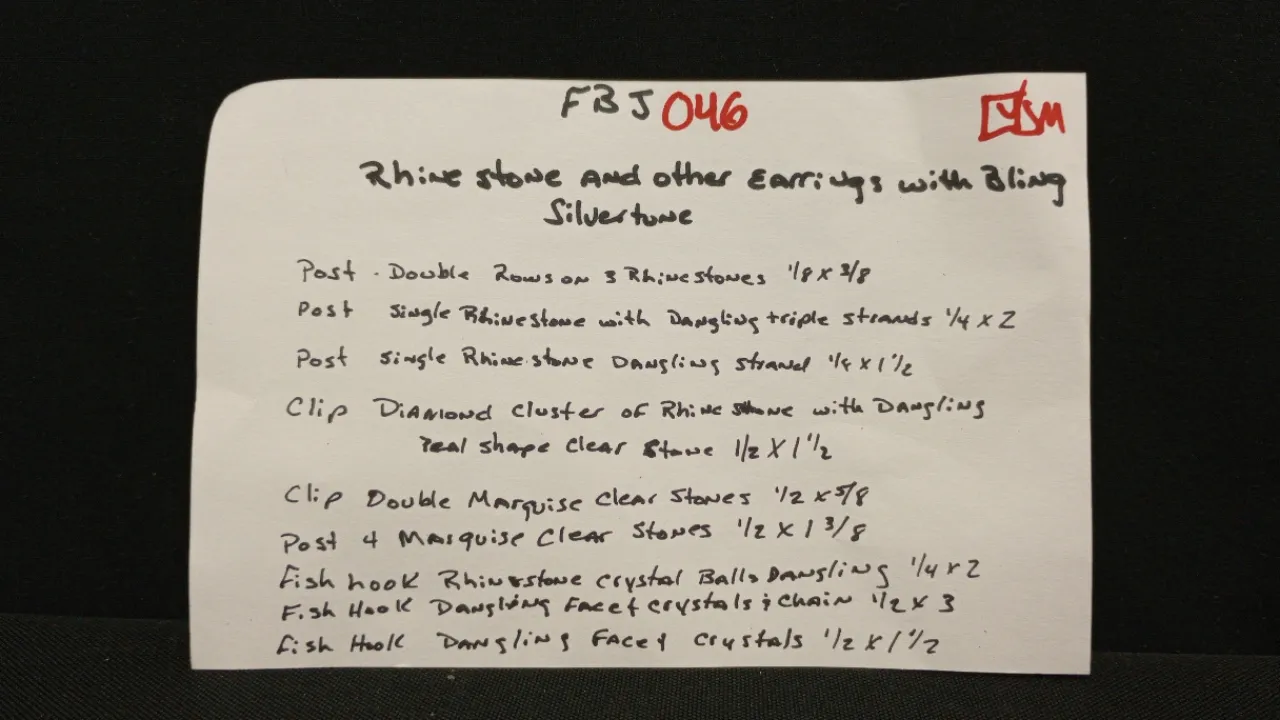 FBJ 046
YSM
Rhinestone and other Earrings with Bling
Silvertone
Post - Double Rows on 3 Rhinestones 1/8 x 3/8
Post Single Rhinestone with Dangling triple strands 1/4 x 2
Post Single Rhinestone Dangling strand 1/8 x 1 1/2
Clip Diamond Cluster of Rhinestone with Dangling
shape Clear Stone 1/2 x 1 1/2
Clip Double Marquise Clear Stones 1/2 x 5/8
Post 4 Marquise Clear Stones 1/2 x 1 3/8
Fish hook Rhinestone crystal Balls Dangling 1/4 x 2
Fish Hook Dangling Facet crystals & Chain 1/2 x 3
Fish Hook Dangling Facet Crystals 1/2 x 1 1/2